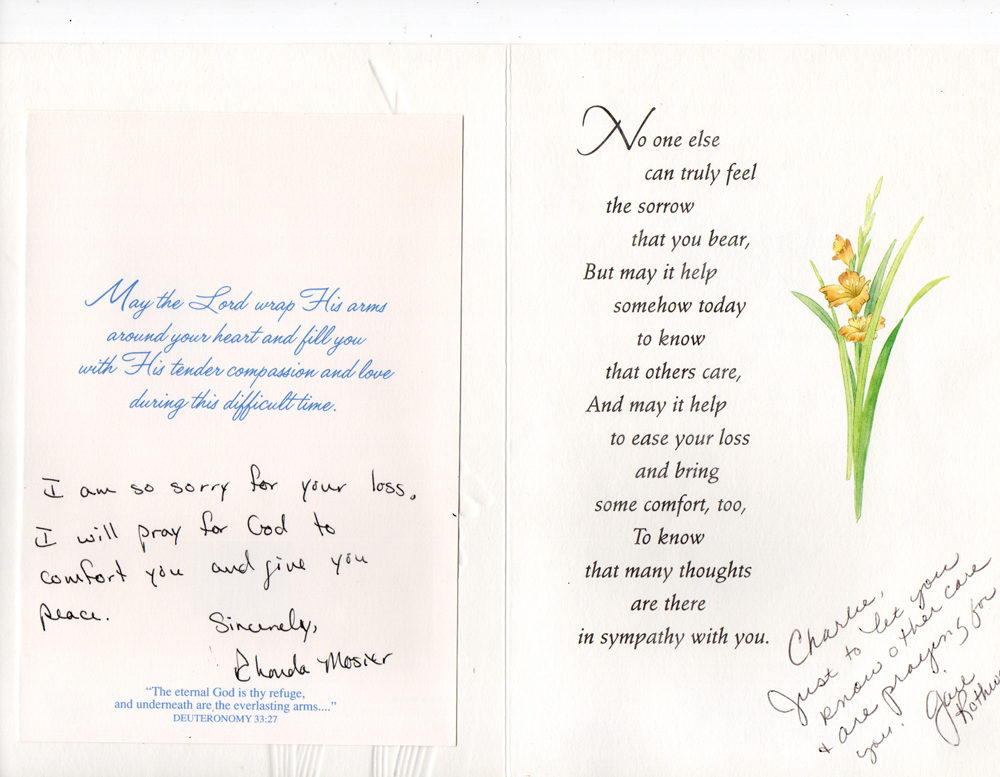 May the Lord wrap His arms
around your heart and fill you
with His tender compassion and love
during this difficult time.
I am so sorry for your loss.
I will pray for God to
comfort you and give you
peace.
Sincerely,
Rhonda Mosier
“The eternal God is thy refuge,
and underneath are the everlasting arms....”
DEUTERONOMY 33:27
No one else
can truly feel
the sorrow
that you bear,
But may it help
somehow today
to know
that others care,
And may it help
to ease your loss
and bring
some comfort, too,
To know
that many thoughts
are there
in sympathy with you.
Charlie,
Just to let you
know other care
+ are praying for
you.